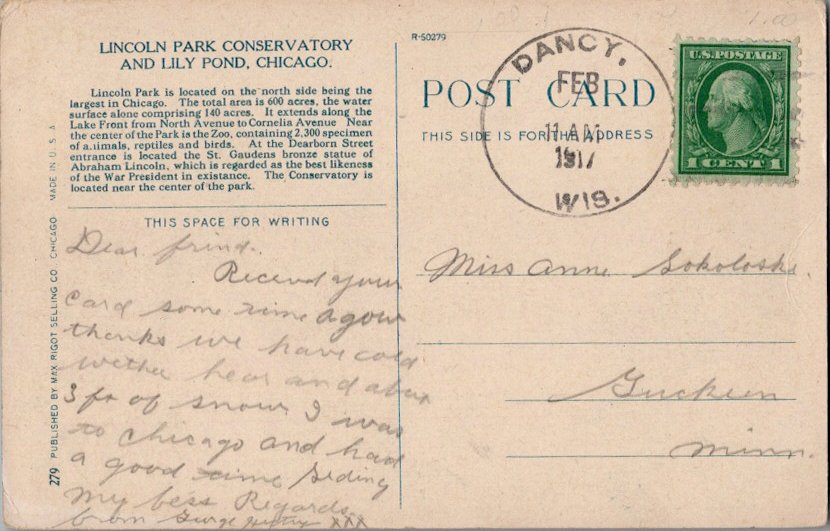 LINCOLN PARK CONSERVATORY
AND LILY POND, CHICAGO.
Lincoln Park is located on the north side being the
largest in Chicago. The total area is 600 acres, the water
surface alone comprising 140 acres. It extends along the
Lake Front from North Avenue to Cornelia Avenue Near
the center of the Park is the Zoo, containing 2,300 specimen
of a.imals, reptiles and birds. At the Dearborn Street
entrance is located the St. Gaudens bronze statue of
Abraham Lincoln, which is regarded as the best likeness
of the War President in existance. The Conservatory is
located near the center of the park.
THIS SPACE FOR WRITING
Dear frind.
Recievd your
Card some time agow
thanks we have cold
wether hear and about
3 ft of snow I was
to chicago and had
a good time
My bess Regards
from XXX
279 PUBLISHED BY MAX RIGOT SELLING CO. CHICAGO MADE IN U. S. A
R-50279
POST CARD
THIS SIDE IS FOR THE ADDRESS
DANCY,
FEB
11 AM
1917
WIS.
U.S. POSTAGE
1 CENT 1
Miss Anne Sokoloski.
Minn.
1.00